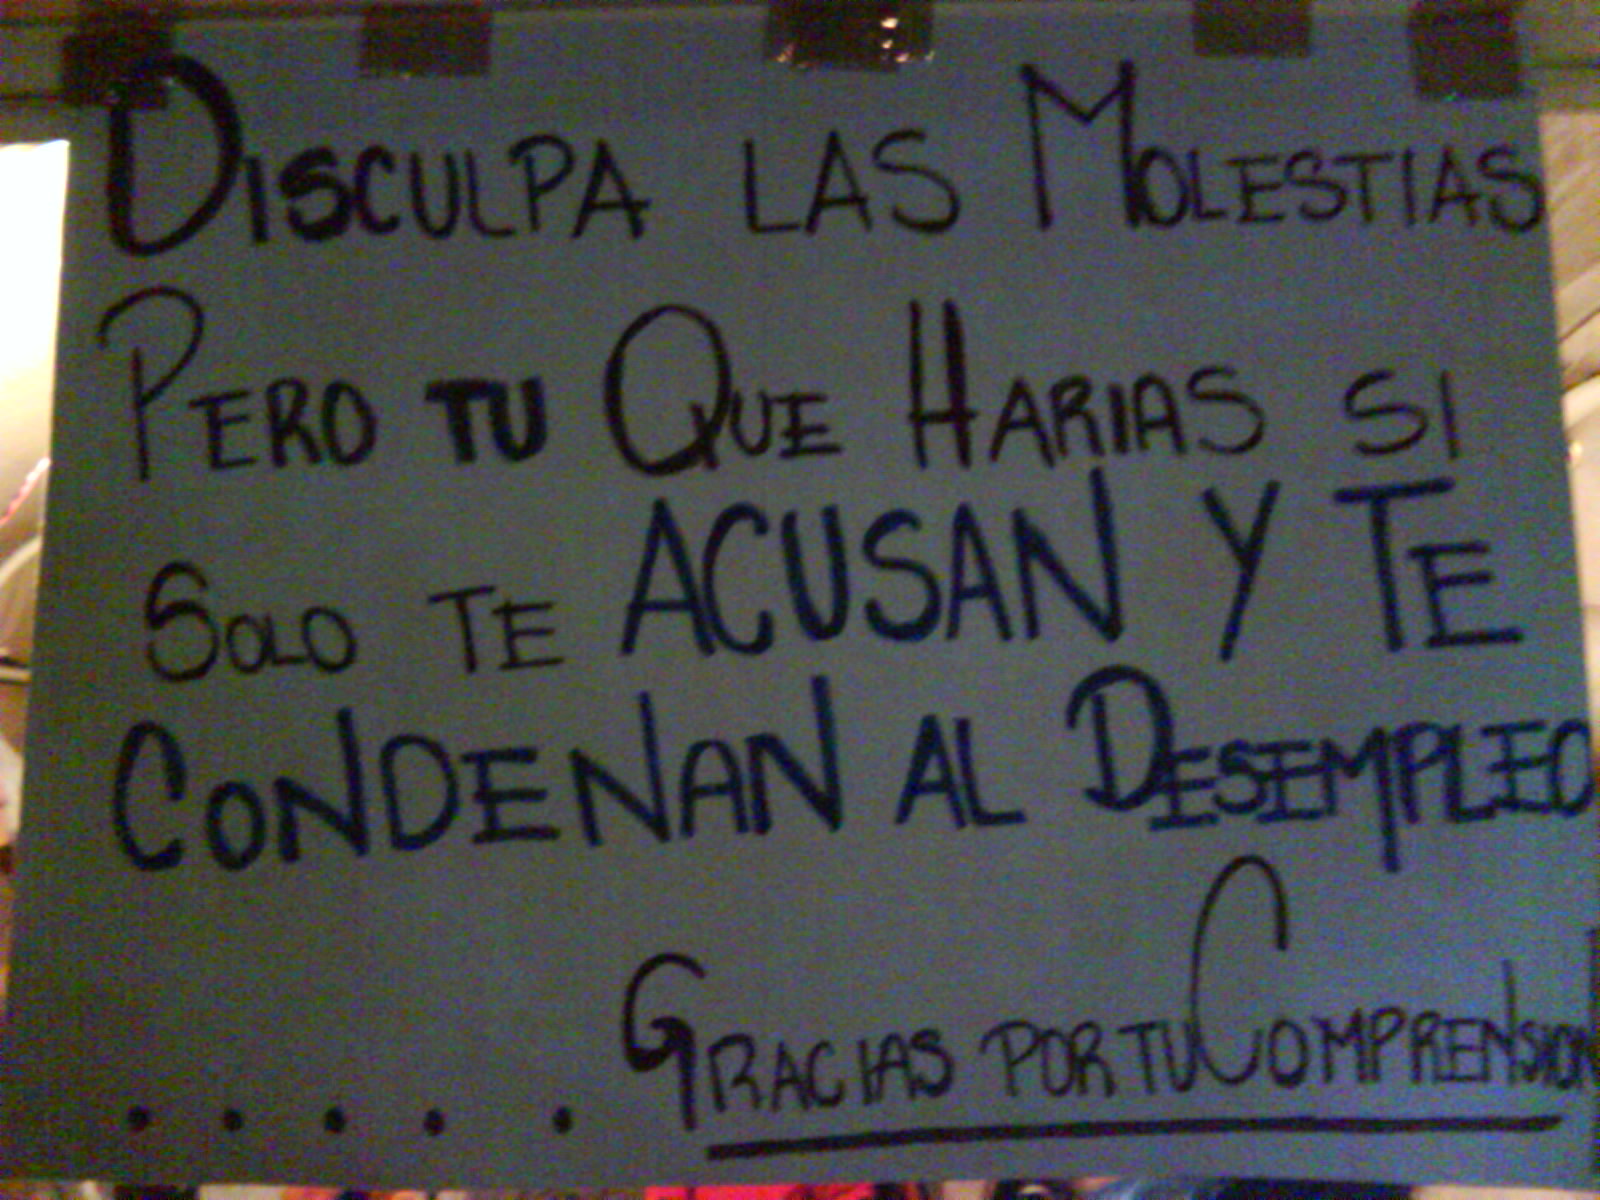 DISCULPA LAS MOLESTIAS
PERO TU QUE HARIAS SI
SOLO TE ACUSAN Y TE
CONDENAN AL DESEMPLEO
..... GRACIAS POR TU COMPRENSION